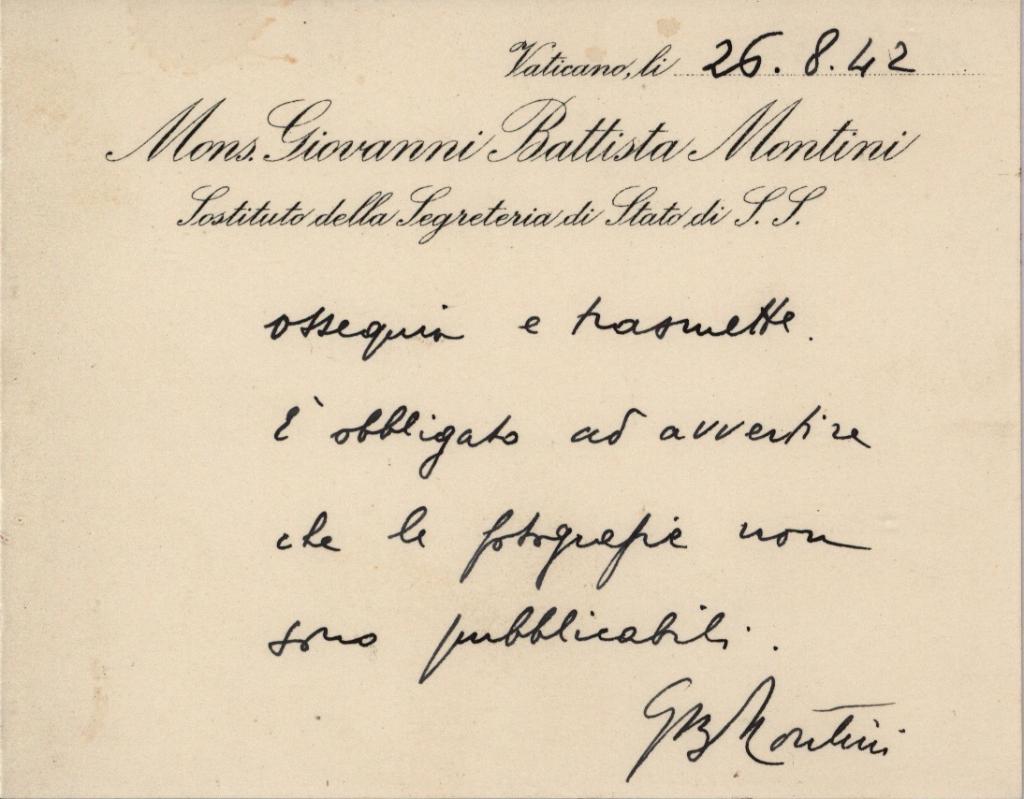 Vaticano, li 26.8.42
Mons. Giovanni Battista Montini
Sostituto della Segreteria di Stato di S. S.
ossequia e trasmette.
È obbligato ad avvertire
che le fotografie non
sono pubblicabili.
GBMontini